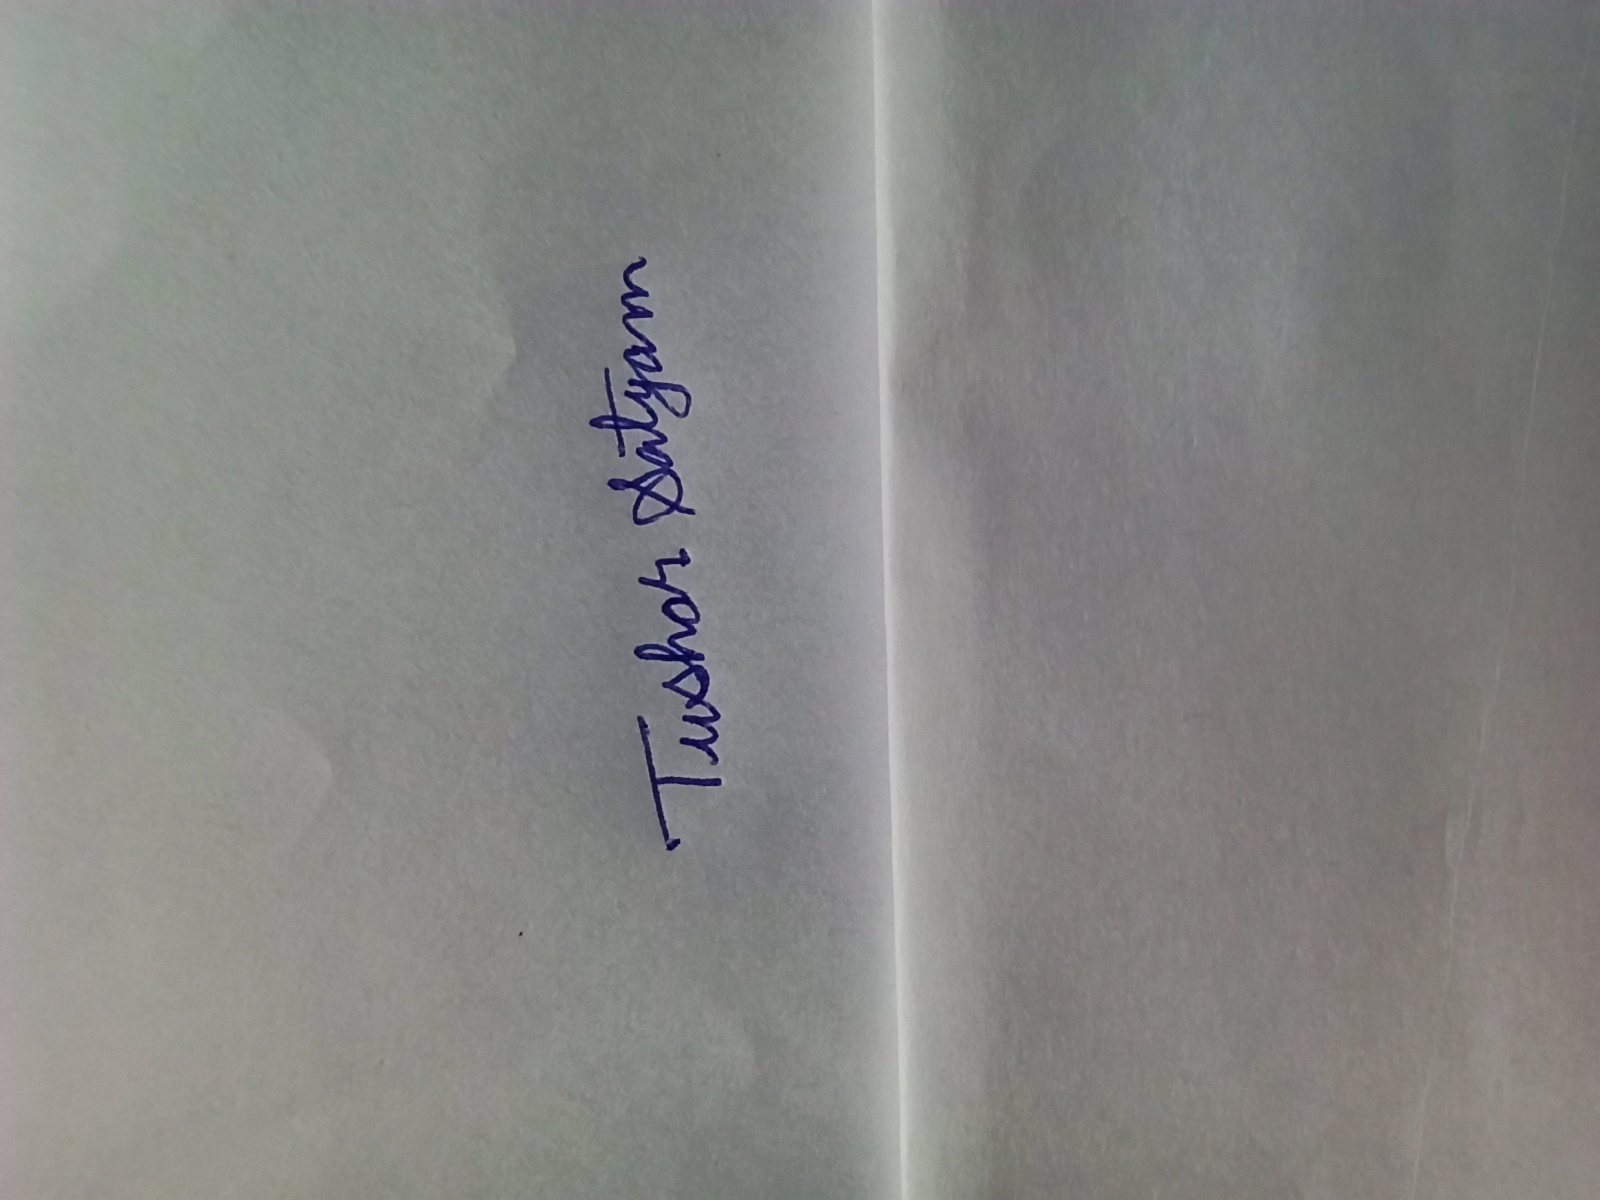 Tushar Satyam